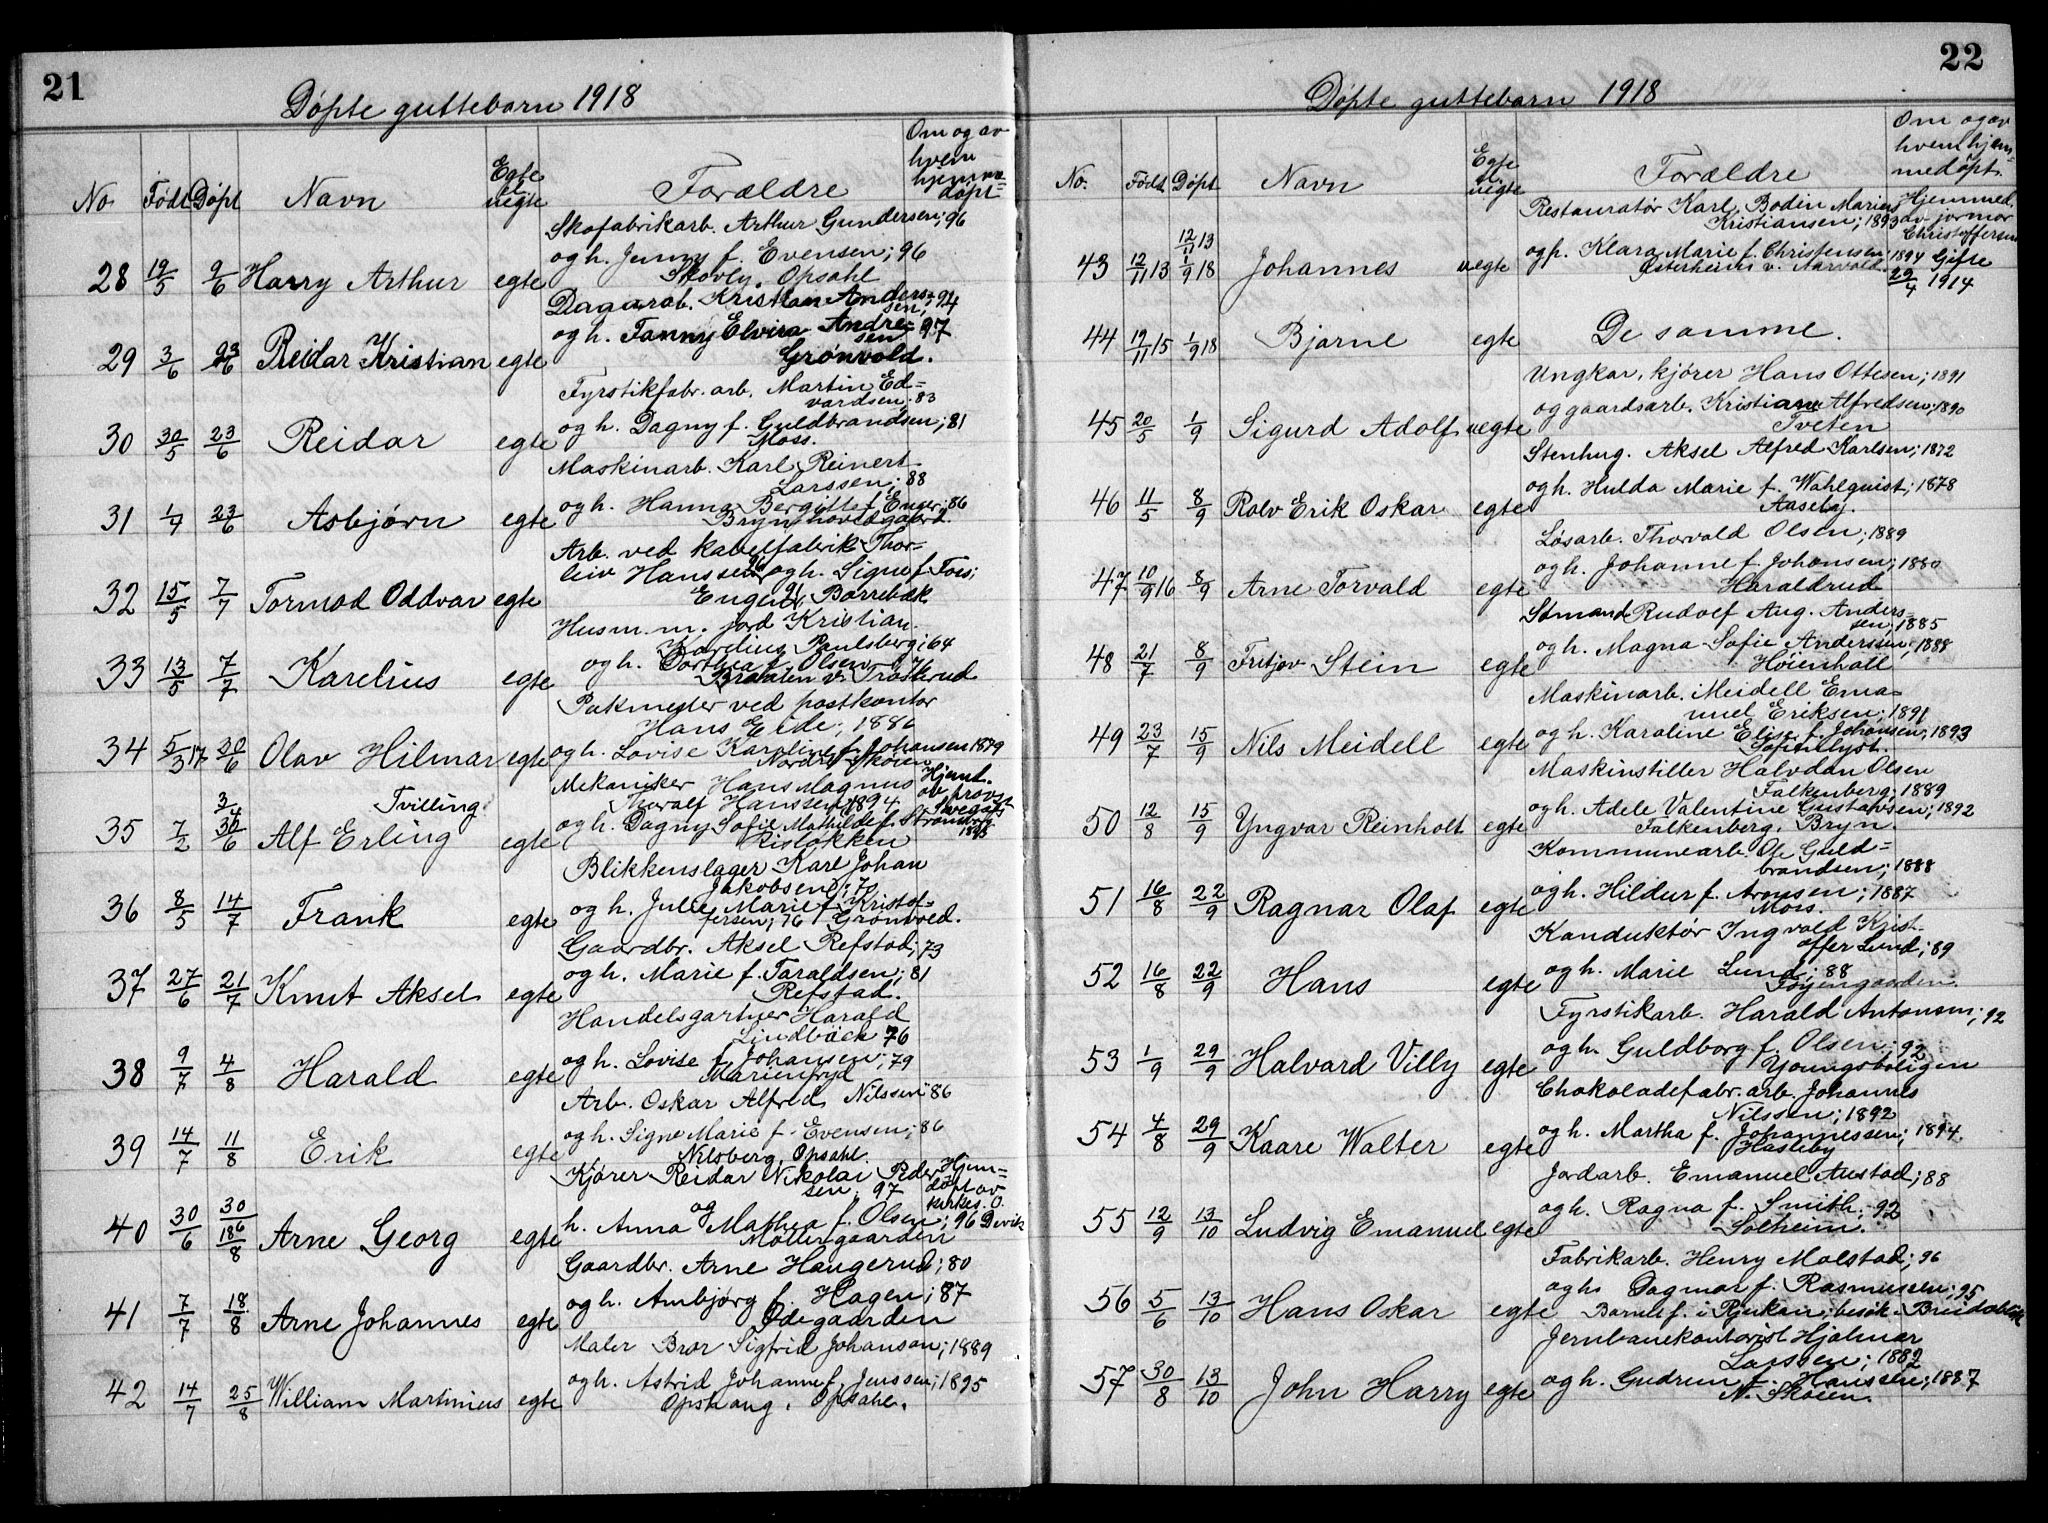 21
Døpte guttebarn 1918
No Født Døpt Navn Egte el. uegte Forældre Om og av hvem hjemmedøpt
Skofabrikarb. Arthur Gundersen; 96
28 19/5 9/6 Harry Arthur egte og h. Jenny f. Evensen; 96
Skovly, Opsahl
Dagarb. Kristian Anders=
sen; 94
29 3/6 23/6 Reidar Kristian egte og h. Fanny Elvira Andre=
sen 97
Grønvold.
Fyrstikfabr. arb. Martin Ed=
vardsen; 83
30 30/5 23/6 Reidar egte og h. Dagny f. Guldbrandsen; 81
Moss.
Maskinarb. Karl Reinert
Larssen; 88
31 1/4 23/6 Asbjørn egte og h. Hanna Bergitte f. Enger; 86
Bryn hovedgaard.
Arb. ved kabelfabrik Thor=
leiv Hanssen og h. Signe f. Foss;
32 15/5 7/7 Tormod Oddvar egte Børrebæk
Husm. m. jord Kristian
Karelius Paulsberg; 64
33 13/5 7/7 Karelius egte og h. Dorthea f. Olsen 76
Braaten v. Trosterud
Pakmester ved postkontor
Hans Eide; 1886
34 5/3 17 30/6 Olav Hilmar egte og h. Lovise Karoline f. Johansen 1879
Nordre Skøien
Mekaniker Hans Magnus
Thoralf Hanssen 1894
Hjemd. av provst
35 7/2 3/4 30/6 Tvilling Alf Erling egte og h. Dagny Sofie Mathilde f. Strømberg 1895
Risløkken
Blikkenslager Karl Johan
Jakobsen; 70
36 8/5 14/7 Frank egte og h. Julie Marie f. Kristof=
fersen; 76 Grønvold.
Gaardbr. Aksel Refstad; 73
37 27/6 21/7 Knut Aksel egte og h. Marie f. Taraldsen; 81
Refstad.
Handelsgartner Harald
Lindbäck 76
38 9/7 4/8 Harald egte og h. Lovise f. Johansen; 79
Marienfryd
Arb. Oskar Alfred Nilssen 86
39 14/7 11/8 Erik egte og h. Signe Marie f. Evensen; 86
Nilsberg, Opsahl.
Kjører Reidar Nikolai Peder=
sen 97
Hjem=
døpt av
kirkes. O.
40 30/6 30/6 18/8 Arne Georg egte og h. Anna Mathea f. Olsen; 96
Møllergaarden
Gaardbr. Arne Haugerud; 80
41 7/7 18/8 Arne Johannes egte og h. Ambjørg f. Hagen; 87
Ødegaarden
Maler Bror Sigfrid Johanson; 1889
42 14/7 25/8 William Martinius egte og h. Astrid Johanne f. Jenssen; 1895
Opshaug, Opsahl.
22
Døpte guttebarn 1918
No. Født Døpt Navn Egte el. uegte Forældre Om og av hvem hjem=
medøpt.
Restauratør Karl Bodin Marius
Kristiansen; 1893
Hjemmed. av jormor
Christoffersen
43 12/11 13 12/11 13 1/9 18 Johannes uegte og p. Klara Marie f. Christensen 1894
Østerheim v. Aarvold.
Gifte
29/4 1914
44 19/11 15 1/9 18 Bjarne egte De samme.
Ungkar, kjører Hans Ottesen; 1891
45 20/5 1/9 Sigurd Adolf uegte og gaardsarb. Kristiane Alfredsen; 1890
Tveten
Stenhug. Aksel Alfred Karlsen; 1872
46 11/5 8/9 Rolv Erik Oskar egte og h. Hulda Marie f. Wahlquist; 1878
Aaseby.
Løsarb. Thorvald Olsen; 1889
47 10/9 16 8/9 Arne Torvald egte og h. Johanne f. Johansen; 1880
Haraldrud
Rudolf Aug. Anders=
sen; 1885
48 21/7 8/9 Fritjov Stein egte og h. Magna Sofie Anderssen; 1888
Høienhall
Maskinarb. Meidell Ema=
nuel Eriksen; 1891
49 23/7 15/9 Nils Meidell egte og h. Karoline Elise f. Johansen; 1893
Sofienlyst.
Maskinstiller Halvdan Olsen
Falkenberg; 1889
50 12/8 15/9 Yngvar Reinholt egte og h. Adele Valentine Gustavsen; 1892
Falkenberg, Bryn.
Kommunearb. Ole Guld=
brandsen; 1888
51 16/8 22/9 Ragnar Olaf egte og h. Hildur f. Aronsen; 1887
Moss.
Konduktør Ingvald Krist=
offer Lund; 89
52 16/8 22/9 Hans egte og h. Marie Lund; 88
Tøyengaarden.
Fyrstikarb. Harald Antonsen; 92
53 1/9 29/9 Halvard Villy egte og h. Guldborg f. Olsen; 92
Youngsboligen
Chokoladefabr. arb. Johannes
Nilssen; 1892
54 4/8 29/9 Kaare Walter egte og h. Martha f. Johannessen; 1894
Hasleby
Jordarb. Emanuel Austad; 88
55 12/9 13/10 Ludvig Emanuel egte og h. Ragna f. Smith; 92
Solheim.
Fabrikarb. Henry Molstad; 96
56 5/6 13/10 Hans Oskar egte og h. Dagmar f. Rasmussen; 95
Barnet f. i Rjukan; besøk.
Jernbanekontorist Hjalmar
Larssen; 1882
57 30/8 13/10 John Harry egte og h. Gudrun f. Hanssen; 1887
N. Skøien.